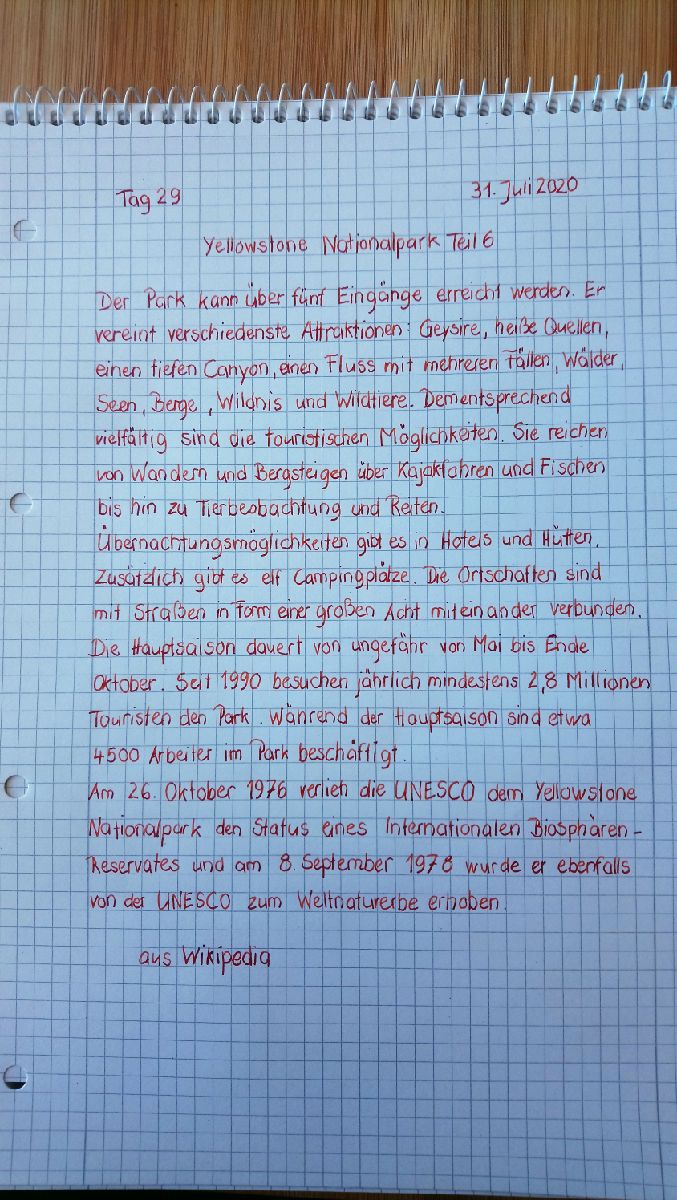 Tag 29
31. Juli 2020
Yellowstone Nationalpark Teil 6
Der Park kann über fünf Eingänge erreicht werden. Er
vereint verschiedenste Attraktionen: Geysire, heiße Quellen,
einen tiefen Canyon, einen Fluss mit mehreren Fällen, Wälder,
Seen, Berge, Wildnis und Wildtiere. Dementsprechend
vielfältig sind die touristischen Möglichkeiten. Sie reichen
von Wandern und Bergsteigen über Kajakfahren und Fischen
bis hin zu Tierbeobachtung und Reiten.
Übernachtungsmöglichkeiten gibt es in Hotels und Hütten.
Zusätzlich gibt es elf Campingplätze. Die Ortschaften sind
mit Straßen in Form einer großen Acht miteinander verbunden.
Die Hauptsaison dauert von ungefähr von Mai bis Ende
Oktober. Seit 1990 besuchen jährlich mindestens 2,8 Millionen
Touristen den Park. Während der Hauptsaison sind etwa
4500 Arbeiter im Park beschäftigt.
Am 26. Oktober 1976 verlieh die UNESCO dem Yellowstone
Nationalpark den Status eines Internationalen Biosphären-
Reservates und am 8. September 1978 wurde er ebenfalls
von der UNESCO zum Weltnaturerbe erhoben.
aus Wikipedia